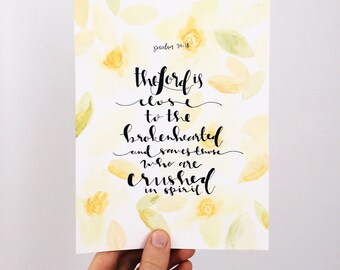 psalm 34:18
the Lord is
close
to the
brokenhearted
and saves those
who are
crushed
in spirit